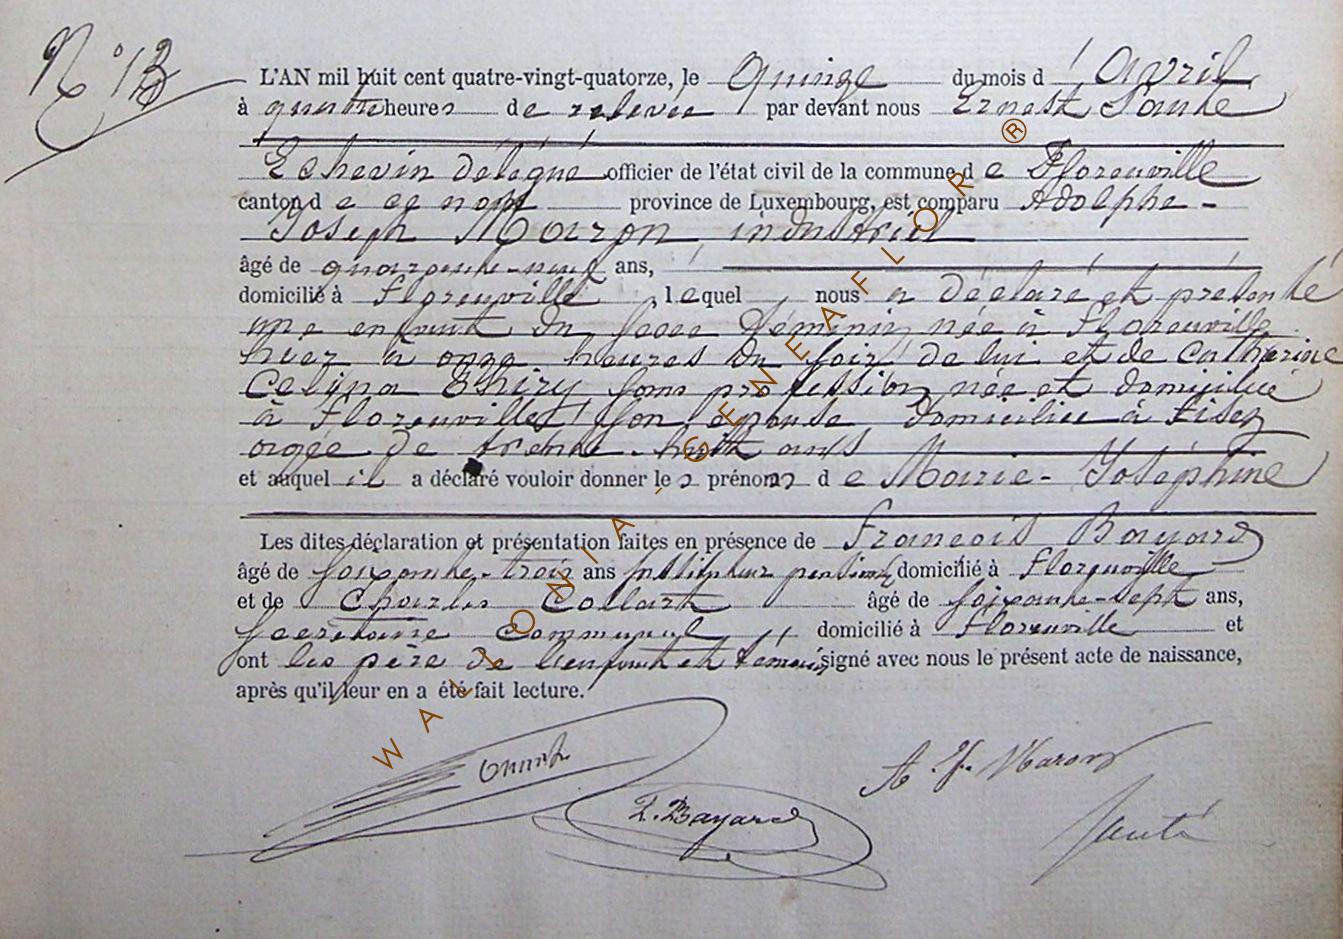 N° 13
L'AN mil huit cent quatre-vingt-quatorze, le quinze du mois d'Avril
à quatre heures de relevée par devant nous Ernest Santé
Echevin délégué officier de l'état civil de la commune de Florenville
canton de ce nom province de Luxembourg, est comparu Adolphe-
Joseph Maron, industriel
âgé de quarante-neuf ans,
domicilié à Florenville, lequel nous a déclaré et présenté
une enfant du sexe féminin née à Florenville
hier à onze heures du soir, de lui et de Catherine
Celina Thiry sans profession née et domiciliée
à Florenville, son épouse domiciliée à
agée de trente-huit ans
et auquel il a déclaré vouloir donner les prénoms de Marie-Joséphine
Les dites déclaration et présentation faites en présence de François Bayard
âgé de soixante-trois ans Instituteur pensionné, domicilié à Florenville
et de Charles Collart âgé de soixante-sept ans,
secrétaire communal domicilié à Florenville et
ont les père de l'enfant et témoins, signé avec nous le présent acte de naissance,
après qu'il leur en a été fait lecture.
A. J. Maron
F. Bayard
Santé
WALLONIA - GENEAFLOR ®